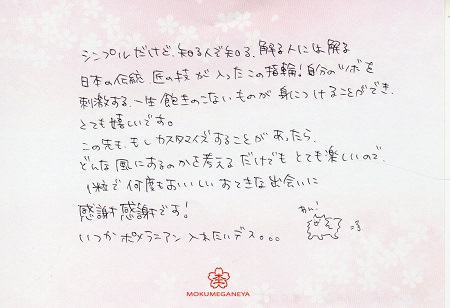 シンプルだけど、知る人ぞ知る、解る人には解る
日本の伝統 匠の技が入ったこの指輪！自分のツボを
刺激する、一生飽きのこないものが身につけることができ、
とても嬉しいです。
この先も、もしカスタマイズすることがあったら、
どんな風にするのかを考えるだけでもとても楽しいので、
1粒で何度もおいしい おてきな出会いに
感謝感謝です！
いつかポメラニアン 入れたいデス。。。
MOKUMEGANEYA